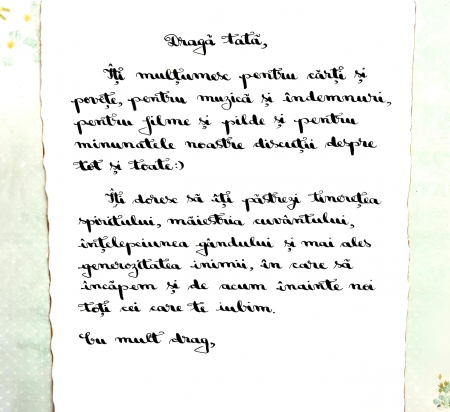 Dragă tată,
Îți mulțumesc pentru cărți și
povețe, pentru muzică și îndemnuri,
pentru filme și pilde și pentru
minunatele noastre discuții despre
tot și toate:)
Îți doresc să îți păstrezi tinerețea
spiritului, măiestria cuvântului,
înțelepciunea gândului și mai ales
generozitatea inimii, în care să
încăpem și de acum înainte noi
toți cei care te iubim.
Cu mult drag,